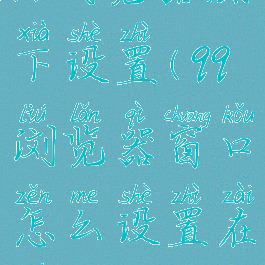 xià shè zhì
下设置(99
liú lǎn qì chuāng kǒu
浏览器窗口
zěn me shè zhì zài
怎么设置在